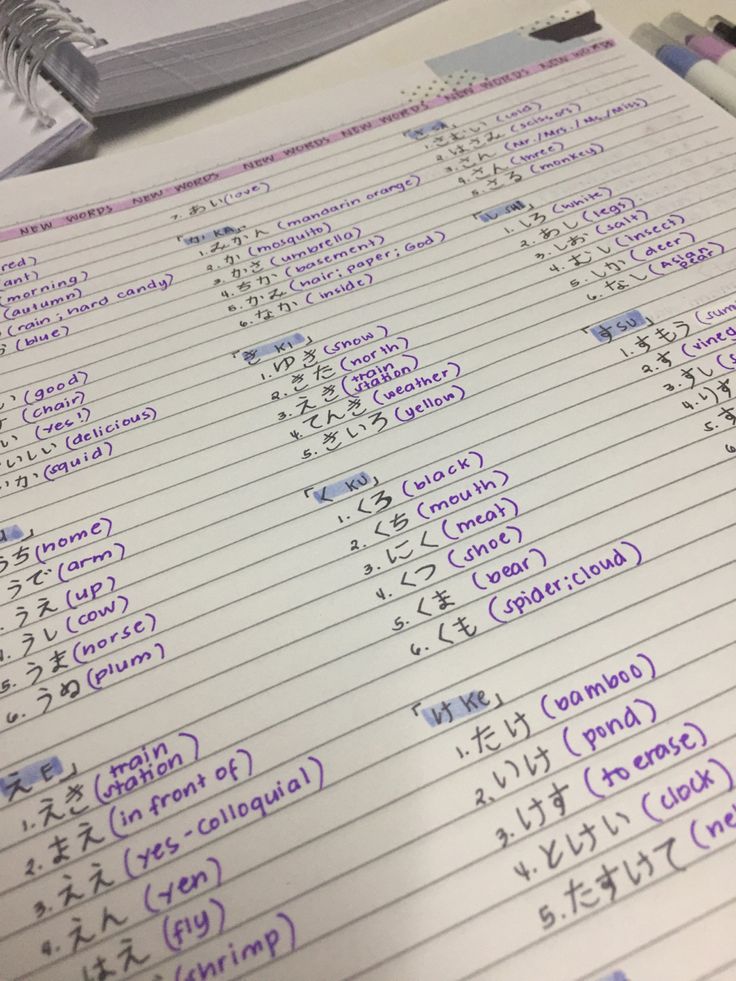 NEW WORDS NEW WORDS NEW WORDS NEW WORDS NEW WORDS NEW WORDS
red)
ant)
(morning)
(autumn)
(rain; hard candy)
(blue)
(good)
(chair)
(yes!)
いしい (delicious)
いか (squid)
うち (home)
うで (arm)
うえ (up)
うし (cow)
5. うま (horse)
6. うめ (plum)
え E」
1. えき (train station)
2. まえ (in front of)
3. ええ (yes-colloquial)
4. えん (yen)
はえ (fly)
(shrimp)
7. あい (love)
「か KA」
1. みかん (mandarin orange)
2. か (mosquito)
3. かさ (umbrella)
4. ちか (basement)
5. かみ (hair; paper; God)
6. なか (inside)
「き KI」
1. ゆき (snow)
2. きた (north)
3. えき (train station)
4. てんき (weather)
5. きいろ (yellow)
「く KU」
1. くろ (black)
2. くち (mouth)
3. にく (meat)
4. くつ (shoe)
5. くま (bear)
6. くも (spider; cloud)
「け Ke」
1. たけ (bamboo)
2. いけ (pond)
3. けす (to erase)
4. とけい (clock)
5. たすけて
1. さむい (cold)
2. はさみ (scissors)
3. さん (Mr./Mrs./Ms./Miss)
4. さん (three)
5. さる (monkey)
「し SHI」
1. しろ (white)
2. あし (legs)
3. しお (salt)
4. むし (insect)
5. しか (deer)
6. なし (Asian pear)
「す SU」
1. すもう
2. す
3. すし